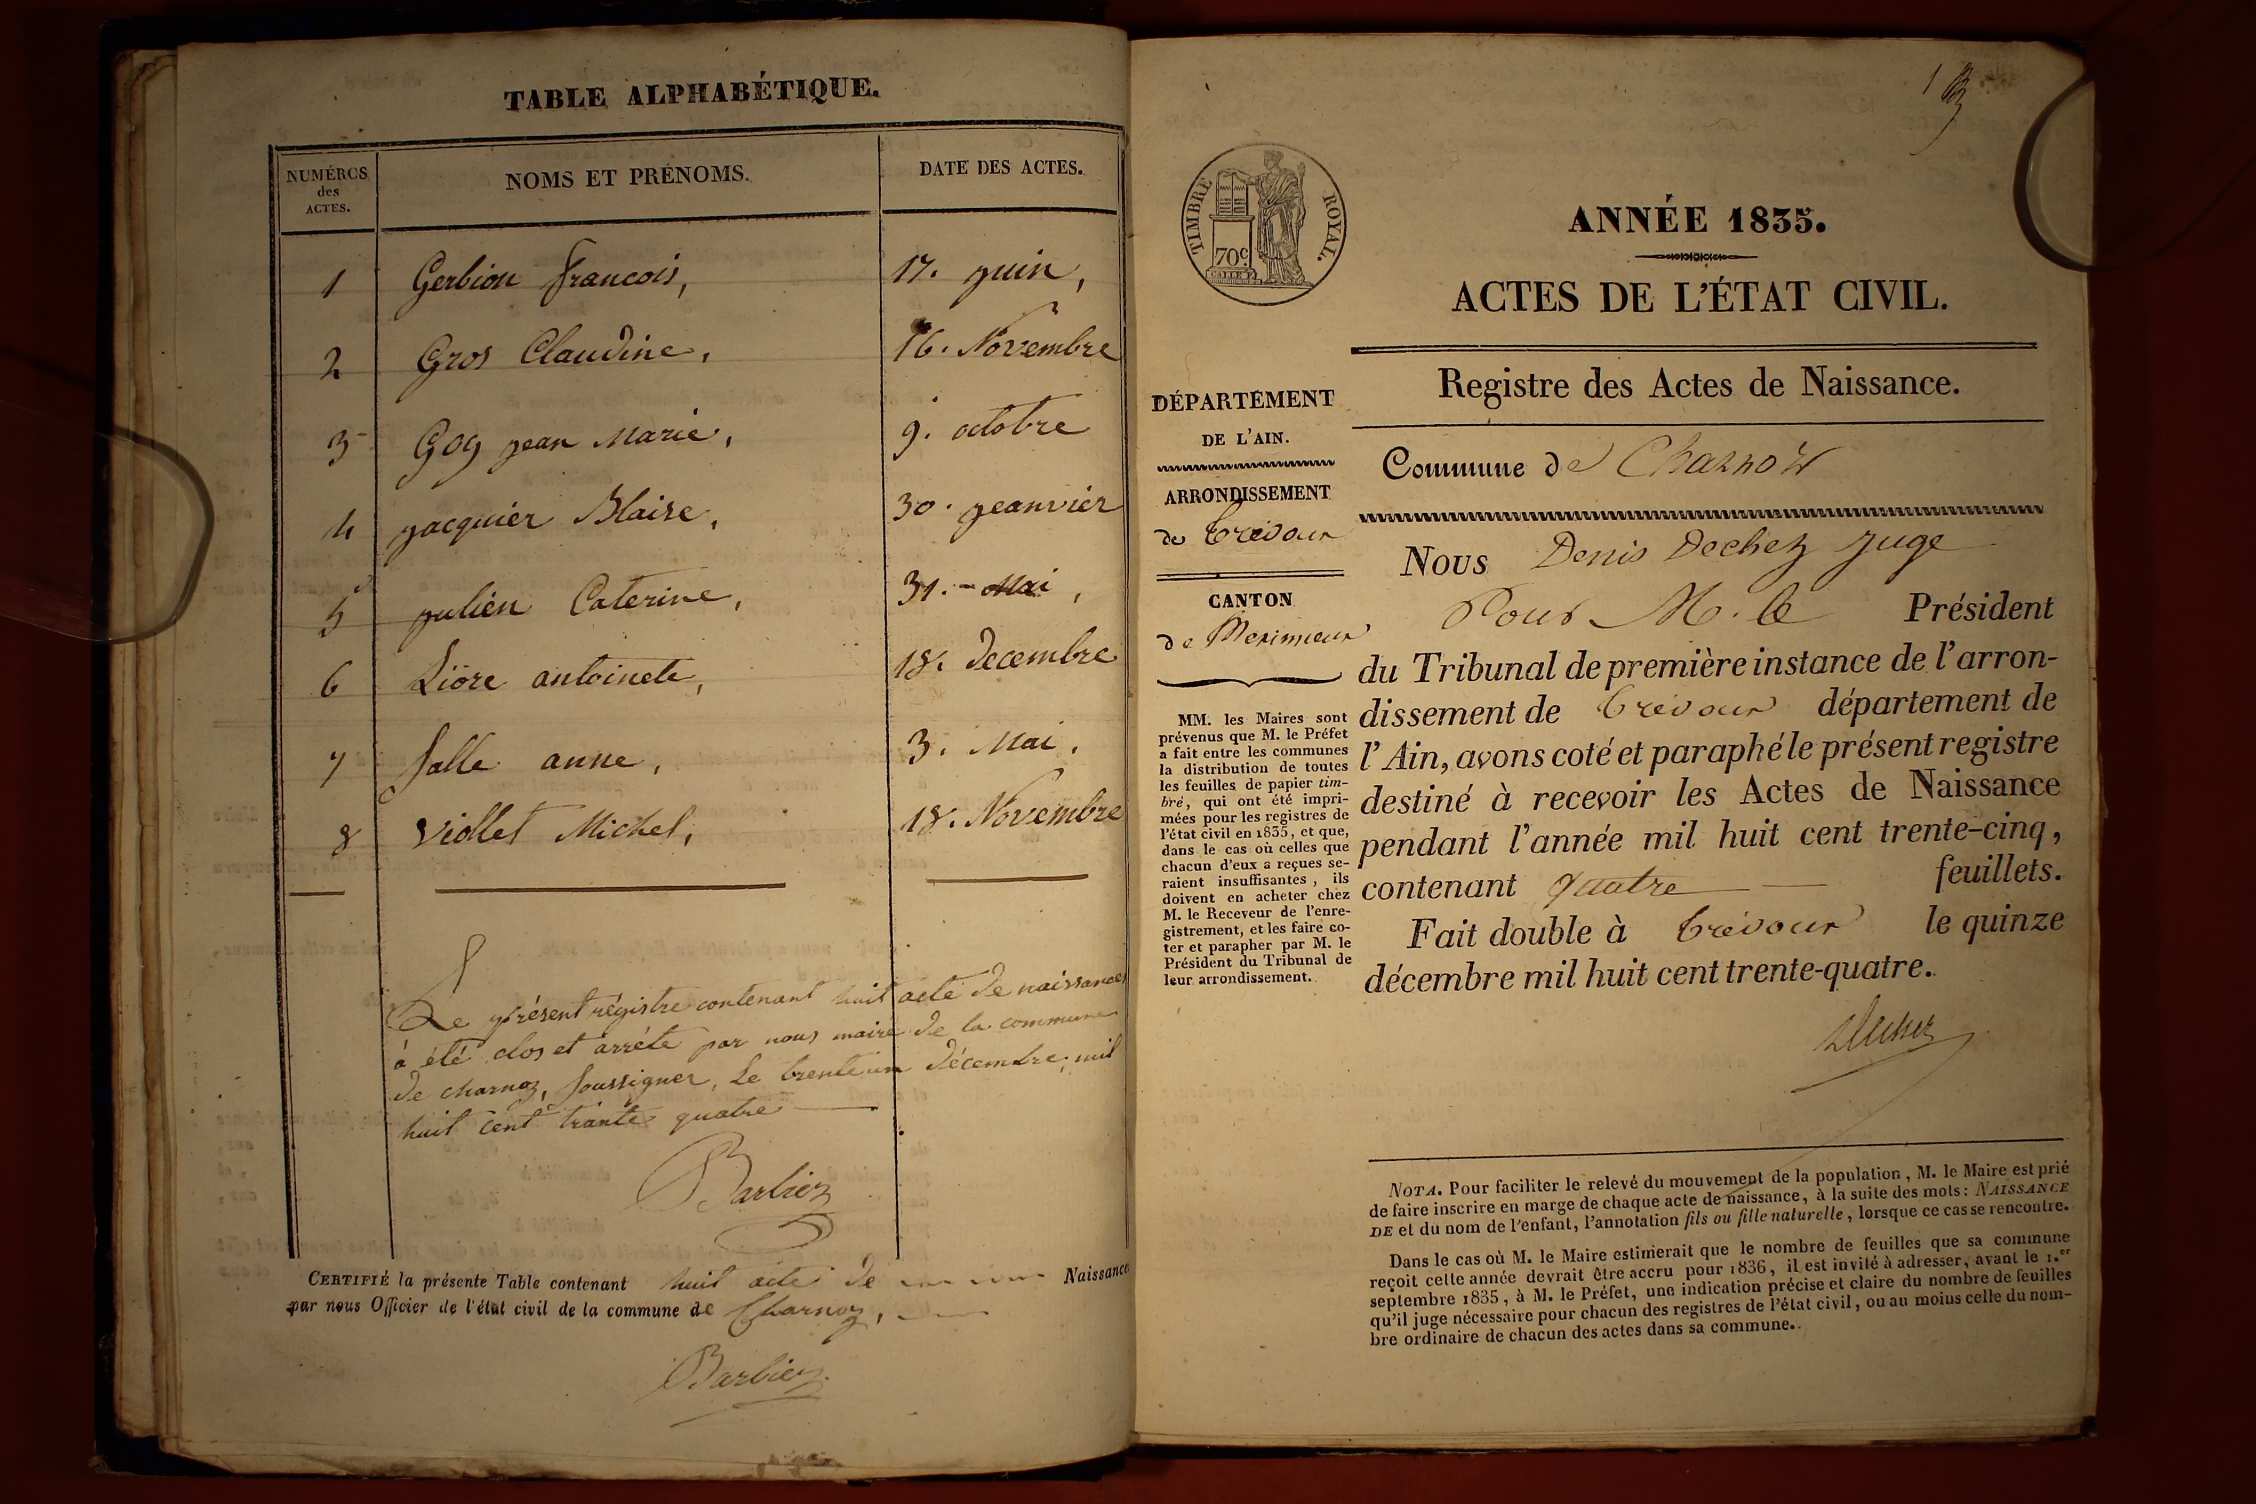 TABLE ALPHABÉTIQUE.
NUMÉROS des ACTES. NOMS ET PRÉNOMS. DATE DES ACTES.
1 Gerbion francois, 17. juin,
2 Gros Claudine, 16. Novembre
3 Goy jean Marie, 9. octobre
4 jacquier Blaise, 30. jeanvier
5 julien Caterine, 31. Mai,
6 Liöre antoinete, 18. decembre
7 Salle anne, 3. Mai.
8 Viollet Michel, 18. Novembre
Le présent régistre contenant huit acte de naissances
à été clos et arrété par nous maire de la commune
de charnoz, soussigner, Le trente un décembre, mil
huit cent trante quatre
Barbier
CERTIFIÉ la présente Table contenant huit acte de Naissance
par nous Officier de l'état civil de la commune de Charnoz,
Barbier
1
TIMBRE ROYAL.
70c.
ANNÉE 1835.
ACTES DE L'ÉTAT CIVIL.
Registre des Actes de Naissance.
DÉPARTEMENT
DE L'AIN.
ARRONDISSEMENT
de Trévoux
CANTON
de Meximieux
MM. les Maires sont
prévenus que M. le Préfet
a fait entre les communes
la distribution de toutes
les feuilles de papier tim-
bré, qui ont été impri-
mées pour les registres de
l'état civil en 1835, et que,
dans le cas où celles que
chacun d'eux a reçues se-
raient insuffisantes, ils
doivent en acheter chez
M. le Receveur de l'enre-
gistrement, et les faire co-
ter et parapher par M. le
Président du Tribunal de
leur arrondissement.
Commune de Charnoz
Nous Denis Dechez juge
Pour M. le Président
du Tribunal de première instance de l'arron-
dissement de Trévoux département de
l'Ain, avons coté et paraphé le présent registre
destiné à recevoir les Actes de Naissance
pendant l'année mil huit cent trente-cinq,
contenant quatre feuillets.
Fait double à Trévoux le quinze
décembre mil huit cent trente-quatre.
Dechez
NOTA. Pour faciliter le relevé du mouvement de la population, M. le Maire est prié
de faire inscrire en marge de chaque acte de naissance, à la suite des mots: NAISSANCE
DE et du nom de l'enfant, l'annotation fils ou fille naturelle, lorsque ce cas se rencontre.
Dans le cas où M. le Maire estimerait que le nombre de feuilles que sa commune
reçoit cette année devrait être accru pour 1836, il est invité à adresser, avant le 1.er
septembre 1835, à M. le Préfet, une indication précise et claire du nombre de feuilles
qu'il juge nécessaire pour chacun des registres de l'état civil, ou au moins celle du nom-
bre ordinaire de chacun des actes dans sa commune.